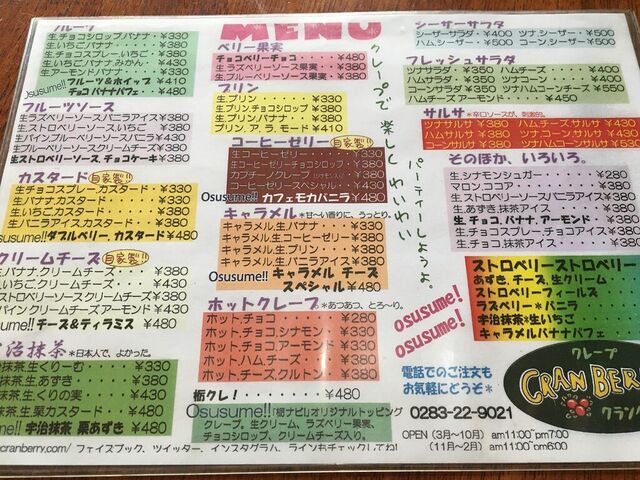 MENU
フルーツ
生.チョコシロップ.バナナ・¥330
生.いちご.バナナ・・・・¥380
生.バナナ.みかん・¥430
生.アーモンドバナナ・・・¥380
Osusume!!フルーツ&ホイップ ¥410
チョコバナナパフェ ¥480
フルーツソース
生ラズベリーソース.バニラアイス ¥380
生.ストロベリーソース.いちご ¥380
生パインブルーベリーソースバニラ ¥430
生ブルーベリーソースクリームチーズ ¥380
生ストロベリーソース.チョコケーキ ¥380
カスタード 自家製!!
生チョコスプレー.カスタード・¥330
生バナナ.カスタード・・・・¥380
生いちご.カスタード・・・・¥380
生バニラアイス.カスタード・¥380
Osusume!!ダブルベリー.カスタード ¥480
クリームチーズ 自家製!!
バナナ.クリームチーズ・・・¥380
いちご.クリームチーズ・・・¥380
ストロベリーソースクリームチーズ ¥380
チョコアイスクリームチーズ・¥380
Osusume!!チーズ&ティラミス ¥480
宇治抹茶 *日本人で、よかった。
抹茶.生くりーむ・・・・・¥330
抹茶.生あずき・・・・・¥380
抹茶.生くりの実・・・・・¥430
抹茶.生.栗カスタード・・・¥480
宇治抹茶 栗あずき ¥480
ベリー果実
チョコベリーチョコ・・・・¥480
生.ラズベリーソース果実・・¥380
生.ブルーベリーソース果実・¥380
プリン
生.プリン・・・・・・¥330
生プリン.チョコシロップ・¥380
生プリン.バナナ・・・・¥380
プリン.ア.ラ.モード・・¥410
コーヒーゼリー 自家製!!
生コーヒーゼリー・・・・¥330
生コーヒーゼリーチョコシロップ ¥380
カプチーノクレープ ¥380
コーヒーゼリースペシャル・¥430
Osusume!!カフェモカバニラ ¥480
キャラメル *甘〜い香りに、うっとり。
キャラメル.生.バナナ・・・¥330
キャラメル.生コーヒーゼリー・¥380
キャラメル.生.プリン・・・¥380
キャラメル.生.チーズ・・・¥380
Osusume!!キャラメル チーズ
スペシャル ¥480
ホットクレープ *あつあつ、とろ〜り。
ホット.チョコ・・・・・¥280
ホット.チョコ.シナモン・・¥330
ホット.チョコ.バナナ・・・¥380
ホット.ハム.チーズ・・・¥380
ホット.チョコ.クリームチーズ・¥380
栃クレ!・・・・・・・¥480
Osusume!!「栃ナビ!」オリジナルトッピング
クレープ。生クリーム、ラズベリー果実、
チョコシロップ、クリームチーズ入り。
クレープで楽しくわいわい
パーティーしようよ。
osusume!
osusume!
シーザーサラダ
シーザーサラダ・¥400 ツナ.シーザー・¥500
ハム.シーザー・¥500 コーン.シーザー・¥500
フレッシュサラダ
ツナサラダ・・¥350 ハムチーズ・・・¥400
ハムサラダ・・¥350 ツナチーズ・・・¥400
コーンサラダ・¥350 ツナハムコーンチーズ ¥550
ハムチーズ.アーモンド・・・¥450
サルサ *辛口ソースが、刺激的。
ツナサルサ・¥380 ハム.チーズ.サルサ・¥430
ハムサルサ・¥380 ツナ.コーン.サルサ・¥430
コーンサルサ・¥380 ツナ.チーズ.サルサ・¥430
そのほか、いろいろ。
生.シナモンシュガー・・・¥280
マロン.ココア・・・・・¥380
生.ストロベリーアイス・・¥380
生.あずき.抹茶アイス・・¥380
生.チョコ.バナナ.アーモンド・¥380
生.チョコスプレー.チョコアイス・¥380
生.チョコ.抹茶アイス・・¥380
ストロベリーストロベリー
あずき.チーズ.生クリーム
ストロベリー*ミルーズ
ラズベリー*バニラ
宇治抹茶*生いちご
キャラメルバナナパフェ
電話でのご注文も
お気軽にどうぞ*
0283-22-9021
OPEN (3月〜10月) am11:00〜pm7:00
(11月〜2月) am11:00〜pm6:00
クレープ
CRAN BER
クラン
cranberry.com/ フェイスブック、ツイッター、インスタグラム、ラインもチェックしてね!